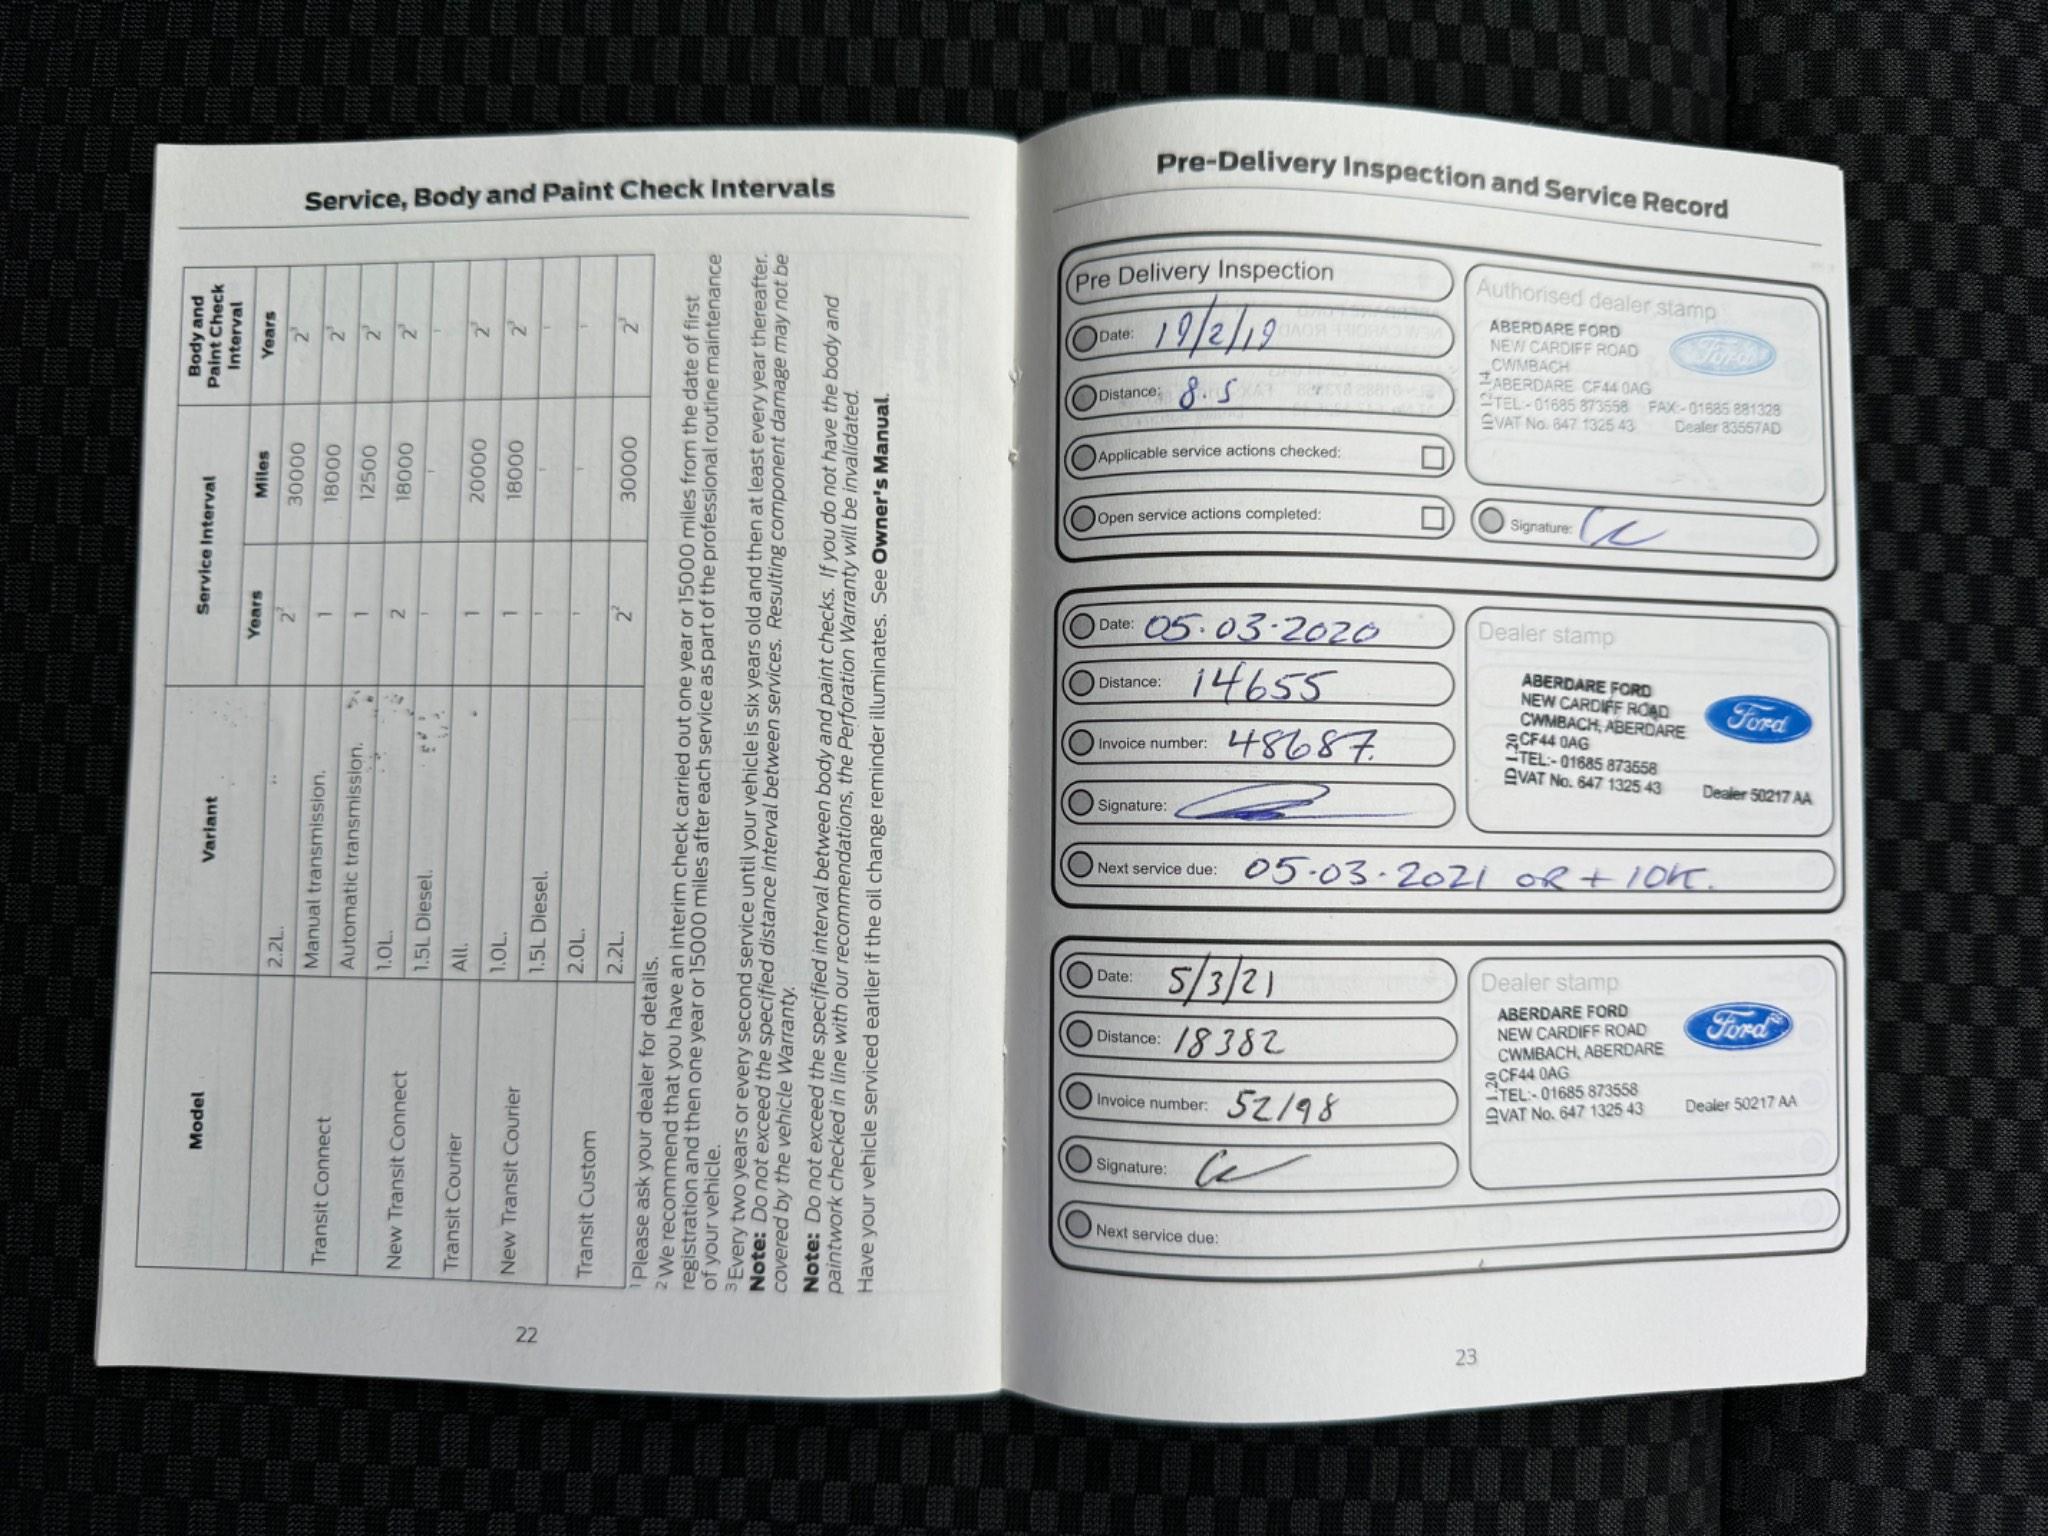 Service, Body and Paint Check Intervals
Model Variant Service Interval Body and Paint Check Interval
Years Miles Years
2.2L. 2² 30000 2³
Transit Connect Manual transmission. 1 18000 2³
Automatic transmission. 1 12500 2³
New Transit Connect 1.0L. 2 18000 2³
1.5L Diesel. ¹ ¹ ¹
Transit Courier All. 1 20000 2³
New Transit Courier 1.0L. 1 18000 2³
1.5L Diesel. ¹ ¹ ¹
Transit Custom 2.0L. ¹ ¹ ¹
2.2L. 2² 30000 2³
¹ Please ask your dealer for details.
² We recommend that you have an interim check carried out one year or 15000 miles from the date of first
registration and then one year or 15000 miles after each service as part of the professional routine maintenance
of your vehicle.
³ Every two years or every second service until your vehicle is six years old and then at least every year thereafter.
Note: Do not exceed the specified distance interval between services. Resulting component damage may not be
covered by the vehicle Warranty.
Note: Do not exceed the specified interval between body and paint checks. If you do not have the body and
paintwork checked in line with our recommendations, the Perforation Warranty will be invalidated.
Have your vehicle serviced earlier if the oil change reminder illuminates. See Owner's Manual.
22
Pre-Delivery Inspection and Service Record
Pre Delivery Inspection
Date: 19/2/19
Distance: 8.5
Applicable service actions checked:
Open service actions completed:
Authorised dealer stamp
ABERDARE FORD
NEW CARDIFF ROAD
CWMBACH
ABERDARE CF44 0AG
TEL:- 01685 873558 FAX:- 01685 881328
VAT No. 647 1325 43 Dealer 83557AD
Ford
Signature:
Date: 05.03.2020
Distance: 14655
Invoice number: 48687.
Signature:
Next service due: 05.03.2021 OR + 10K.
Dealer stamp
ABERDARE FORD
NEW CARDIFF ROAD
CWMBACH, ABERDARE
CF44 0AG
TEL:- 01685 873558
VAT No. 647 1325 43 Dealer 50217 AA
ID 1.20
Ford
Date: 5/3/21
Distance: 18382
Invoice number: 52198
Signature:
Next service due:
Dealer stamp
ABERDARE FORD
NEW CARDIFF ROAD
CWMBACH, ABERDARE
CF44 0AG
TEL:- 01685 873558
VAT No. 647 1325 43 Dealer 50217 AA
ID 1.20
Ford
23